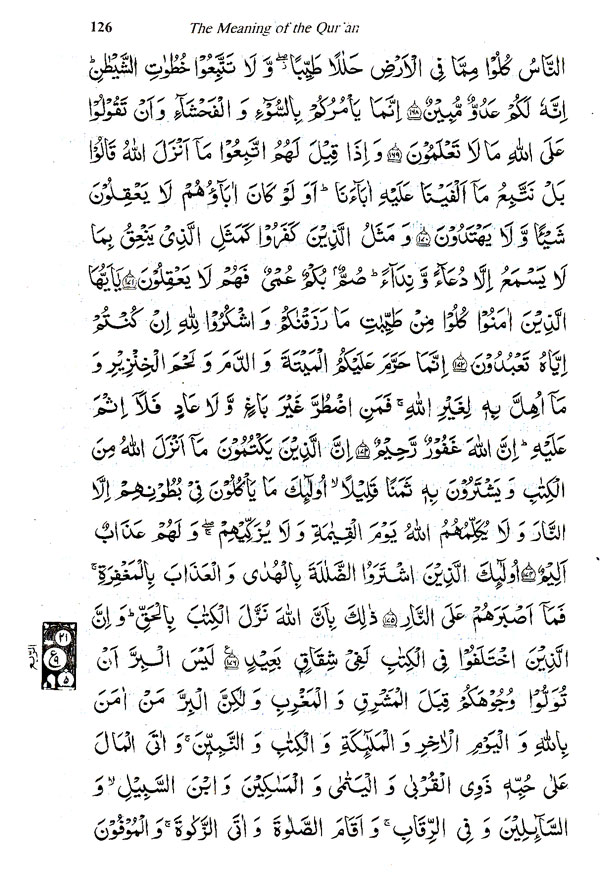 126 The Meaning of the Qur'an
النَّاسُ كُلُوْا مِمَّا فِى الْاَرْضِ حَلٰلًا طَيِّبًا ۖ وَّ لَا تَتَّبِعُوْا خُطُوٰتِ الشَّيْطٰنِ ؕ
اِنَّهٗ لَكُمْ عَدُوٌّ مُّبِيْنٌ ﴿۱۶۸﴾ اِنَّمَا يَاْمُرُكُمْ بِالسُّوْٓءِ وَ الْفَحْشَآءِ وَ اَنْ تَقُوْلُوْا
عَلَى اللهِ مَا لَا تَعْلَمُوْنَ ﴿۱۶۹﴾ وَ اِذَا قِيْلَ لَهُمُ اتَّبِعُوْا مَاۤ اَنْزَلَ اللهُ قَالُوْا
بَلْ نَتَّبِعُ مَاۤ اَلْفَيْنَا عَلَيْهِ اٰبَآءَنَا ؕ اَوَ لَوْ كَانَ اٰبَآؤُهُمْ لَا يَعْقِلُوْنَ
شَيْـًٔا وَّ لَا يَهْتَدُوْنَ ﴿۱۷۰﴾ وَ مَثَلُ الَّذِيْنَ كَفَرُوْا كَمَثَلِ الَّذِىْ يَنْعِقُ بِمَا
لَا يَسْمَعُ اِلَّا دُعَآءً وَّ نِدَآءً ؕ صُمٌّۢ بُكْمٌ عُمْىٌ فَهُمْ لَا يَعْقِلُوْنَ ﴿۱۷۱﴾ يٰۤاَيُّهَا
الَّذِيْنَ اٰمَنُوْا كُلُوْا مِنْ طَيِّبٰتِ مَا رَزَقْنٰكُمْ وَ اشْكُرُوْا لِلّٰهِ اِنْ كُنْتُمْ
اِيَّاهُ تَعْبُدُوْنَ ﴿۱۷۲﴾ اِنَّمَا حَرَّمَ عَلَيْكُمُ الْمَيْتَةَ وَ الدَّمَ وَ لَحْمَ الْخِنْزِيْرِ وَ
مَاۤ اُهِلَّ بِهٖ لِغَيْرِ اللهِ ۚ فَمَنِ اضْطُرَّ غَيْرَ بَاغٍ وَّ لَا عَادٍ فَلَاۤ اِثْمَ
عَلَيْهِ ؕ اِنَّ اللهَ غَفُوْرٌ رَّحِيْمٌ ﴿۱۷۳﴾ اِنَّ الَّذِيْنَ يَكْتُمُوْنَ مَاۤ اَنْزَلَ اللهُ مِنَ
الْكِتٰبِ وَ يَشْتَرُوْنَ بِهٖ ثَمَنًا قَلِيْلًا ۙ اُولٰٓئِكَ مَا يَاْكُلُوْنَ فِىْ بُطُوْنِهِمْ اِلَّا
النَّارَ وَ لَا يُكَلِّمُهُمُ اللهُ يَوْمَ الْقِيٰمَةِ وَ لَا يُزَكِّيْهِمْ ۖ وَ لَهُمْ عَذَابٌ
اَلِيْمٌ ﴿۱۷۴﴾ اُولٰٓئِكَ الَّذِيْنَ اشْتَرَوُا الضَّلٰلَةَ بِالْهُدٰى وَ الْعَذَابَ بِالْمَغْفِرَةِ ۚ
فَمَاۤ اَصْبَرَهُمْ عَلَى النَّارِ ﴿۱۷۵﴾ ذٰلِكَ بِاَنَّ اللهَ نَزَّلَ الْكِتٰبَ بِالْحَقِّ ؕ وَ اِنَّ
الَّذِيْنَ اخْتَلَفُوْا فِى الْكِتٰبِ لَفِىْ شِقَاقٍۭ بَعِيْدٍ ﴿۱۷۶﴾ لَيْسَ الْبِرَّ اَنْ
تُوَلُّوْا وُجُوْهَكُمْ قِبَلَ الْمَشْرِقِ وَ الْمَغْرِبِ وَ لٰكِنَّ الْبِرَّ مَنْ اٰمَنَ
بِاللهِ وَ الْيَوْمِ الْاٰخِرِ وَ الْمَلٰٓئِكَةِ وَ الْكِتٰبِ وَ النَّبِيّٖنَ ۚ وَ اٰتَى الْمَالَ
عَلٰى حُبِّهٖ ذَوِى الْقُرْبٰى وَ الْيَتٰمٰى وَ الْمَسٰكِيْنَ وَ ابْنَ السَّبِيْلِ ۙ وَ
السَّآئِلِيْنَ وَ فِى الرِّقَابِ ۚ وَ اَقَامَ الصَّلٰوةَ وَ اٰتَى الزَّكٰوةَ ۚ وَ الْمُوْفُوْنَ
۲۱
ع
۹
۵